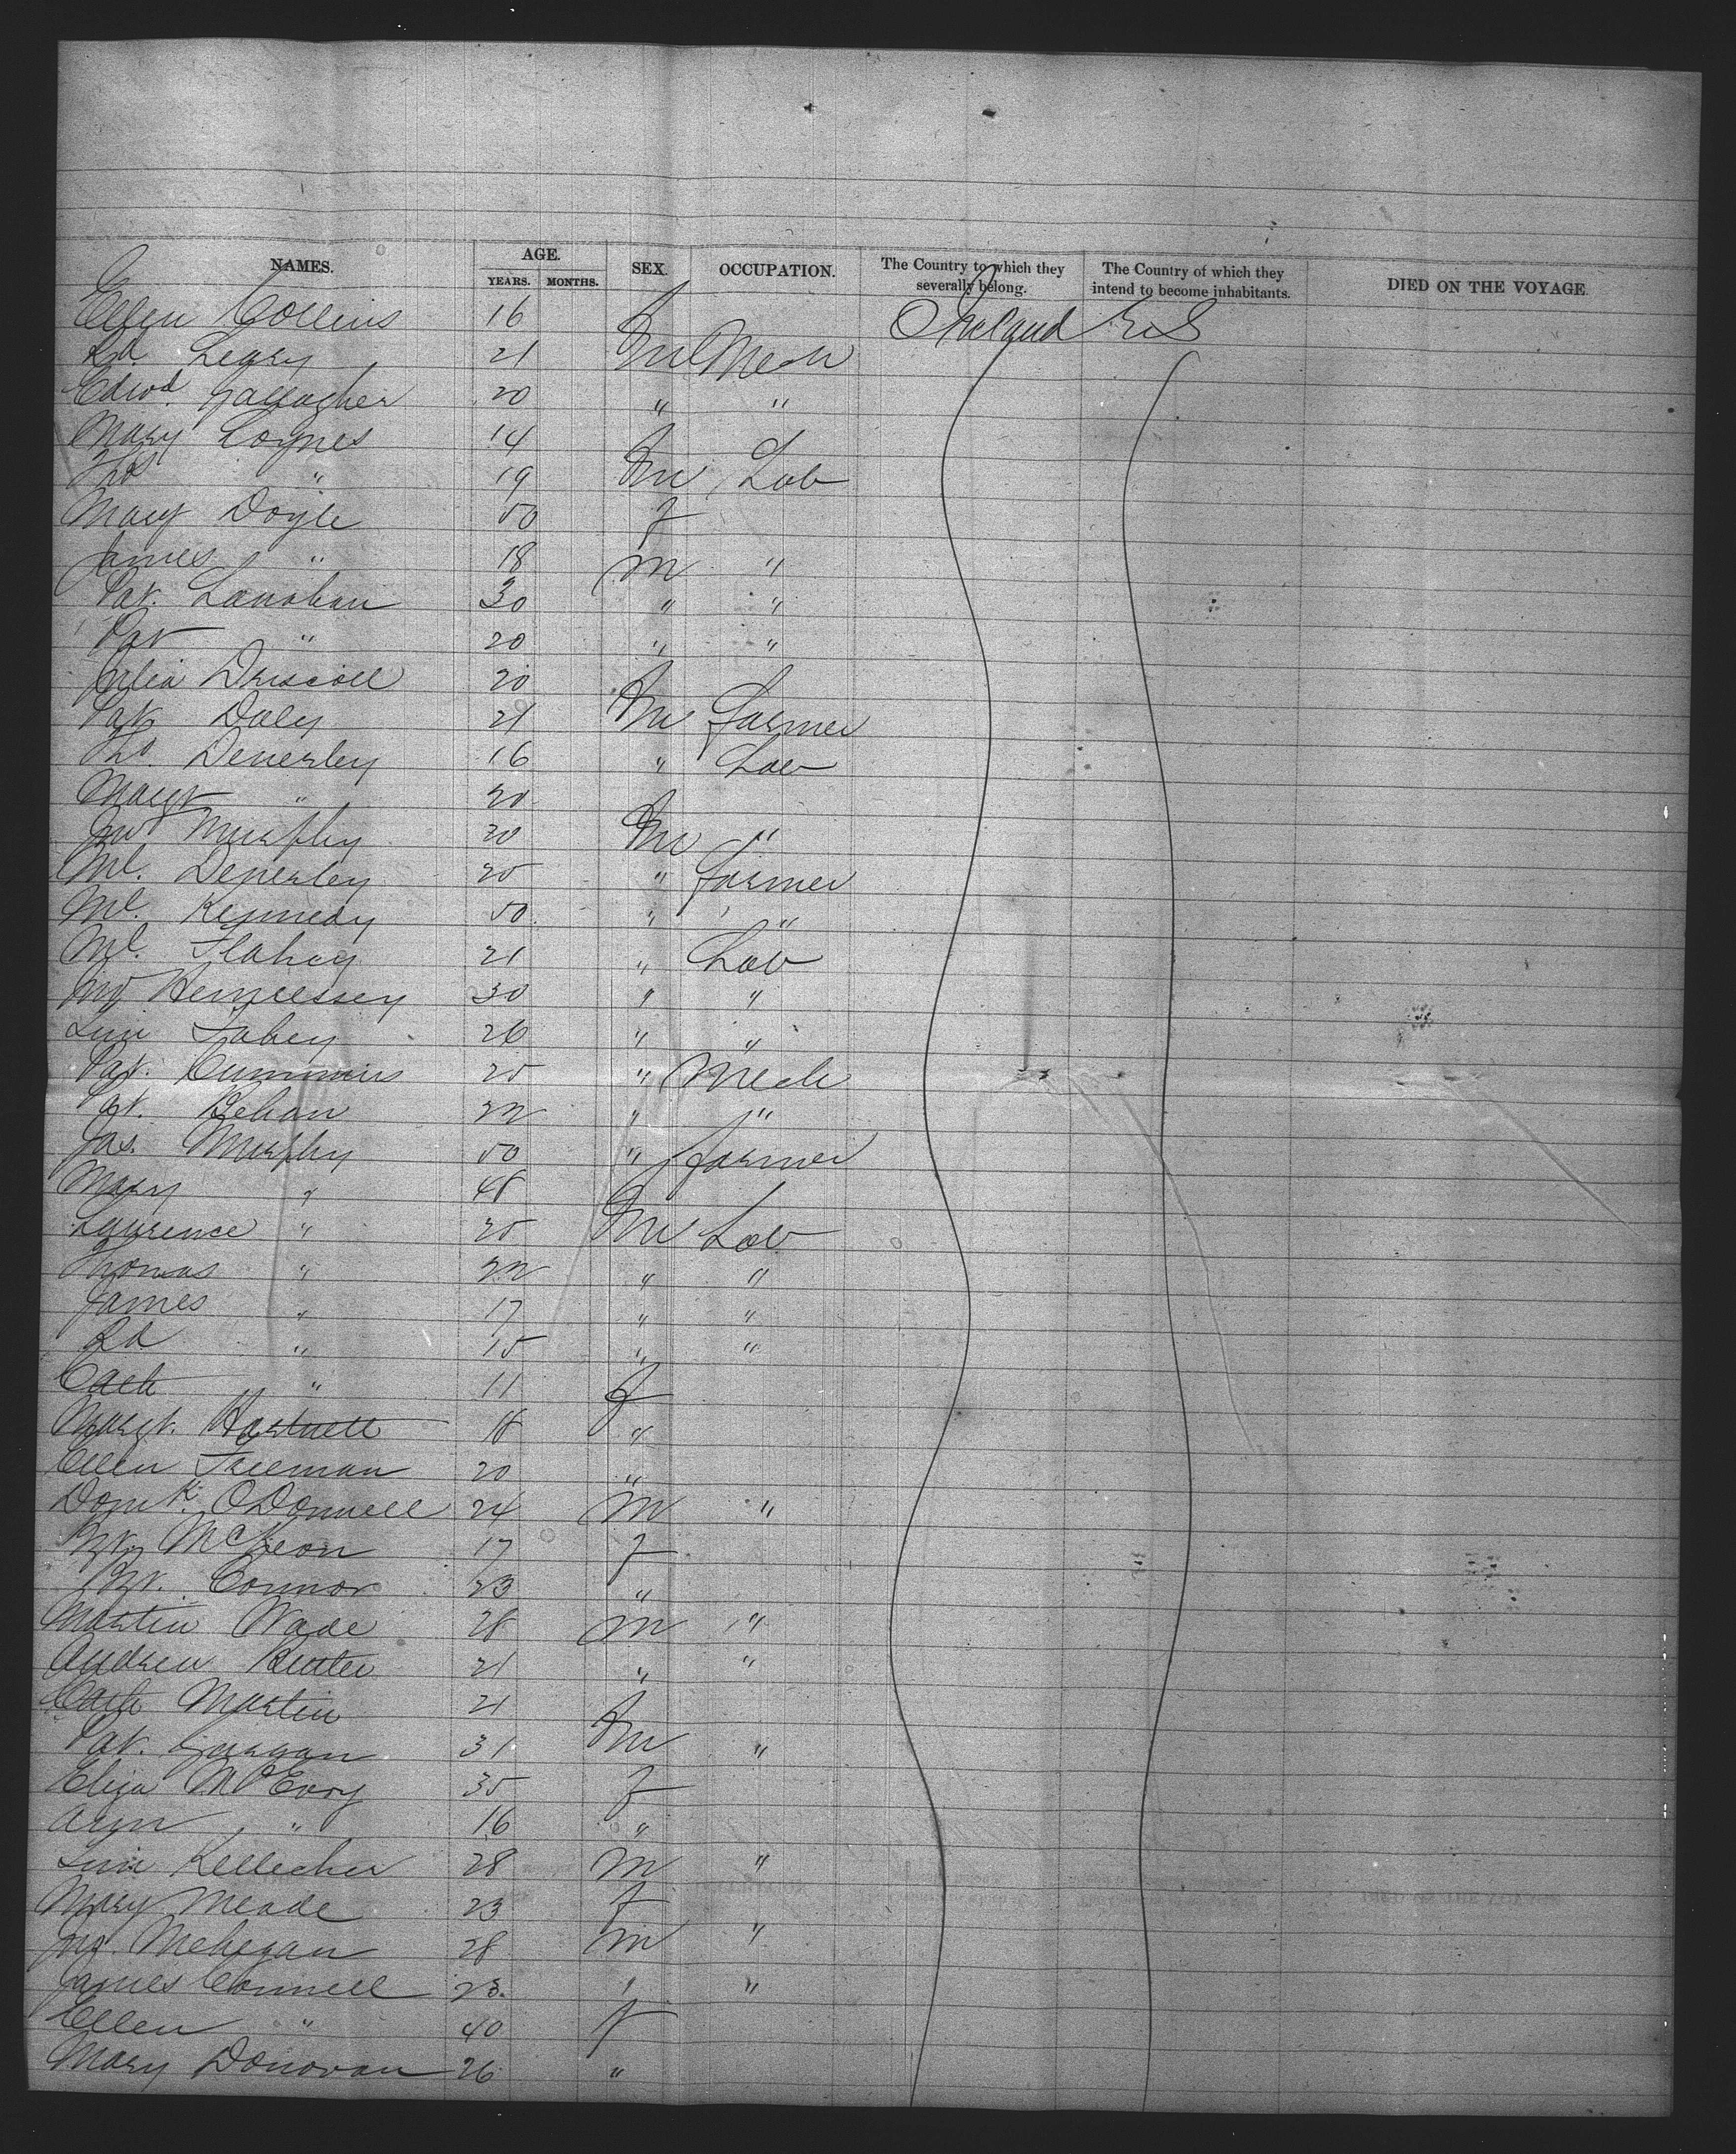 NAMES. AGE. YEARS. MONTHS. SEX. OCCUPATION. The Country to which they severally belong. The Country of which they intend to become inhabitants. DIED ON THE VOYAGE.
Ellen Collins 16 f Ireland U S
Rd Leary 21 m Mech
Edwd Gallagher 20 " "
Mary Coynes 14
Ths " 19 m Lab
Mary Doyle 50 f
James " 18 m "
Pat. Lanahan 30 " "
Pat " 20 " "
Julia Driscoll 20
Pat Daly 21 m farmer
Tho. Denerley 16 " Lab
Margt " 20
Jno Murphy 20 m "
Ml. Denerley 25 " farmer
Ml. Kennedy 50 " "
Ml. Flahey 21 " Lab
Jno Hennessey 30 " "
Tim Fahey 26 " "
Pat. Cummins 25 " Mech
Pat. Behan 22 " "
Jas. Murphy 50 " farmer
Mary " 48
Laurence " 25 m Lab
Thomas " 22 " "
James " 17 " "
Rd " 15 " "
Cath " 11 f
Margt. Hartnett 18 "
Ellen Freeman 20 "
Domk. O'Donnell 24 m "
Bt. McKeon 17 f
Bt. Connor 23 "
Martin Wade 28 m "
Andrew 21 " "
Cath Martin 21
Pat. Gargan 31 m "
Eliza McEvoy 35 f
" 16 "
Tim Kellecher 28 m "
Mary Meade 23 f
Jno. Mehegan 28 m "
James Connell 23. " "
Ellen " 40 f
Mary Donovan 26 "